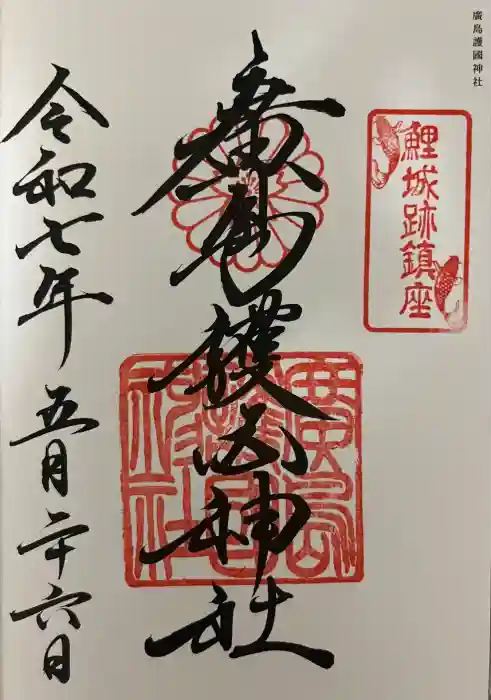 廣島護國神社
鯉城跡鎮座
廣島護國神社
廣島護國神社
令和七年五月二十六日